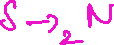 S → 2 N